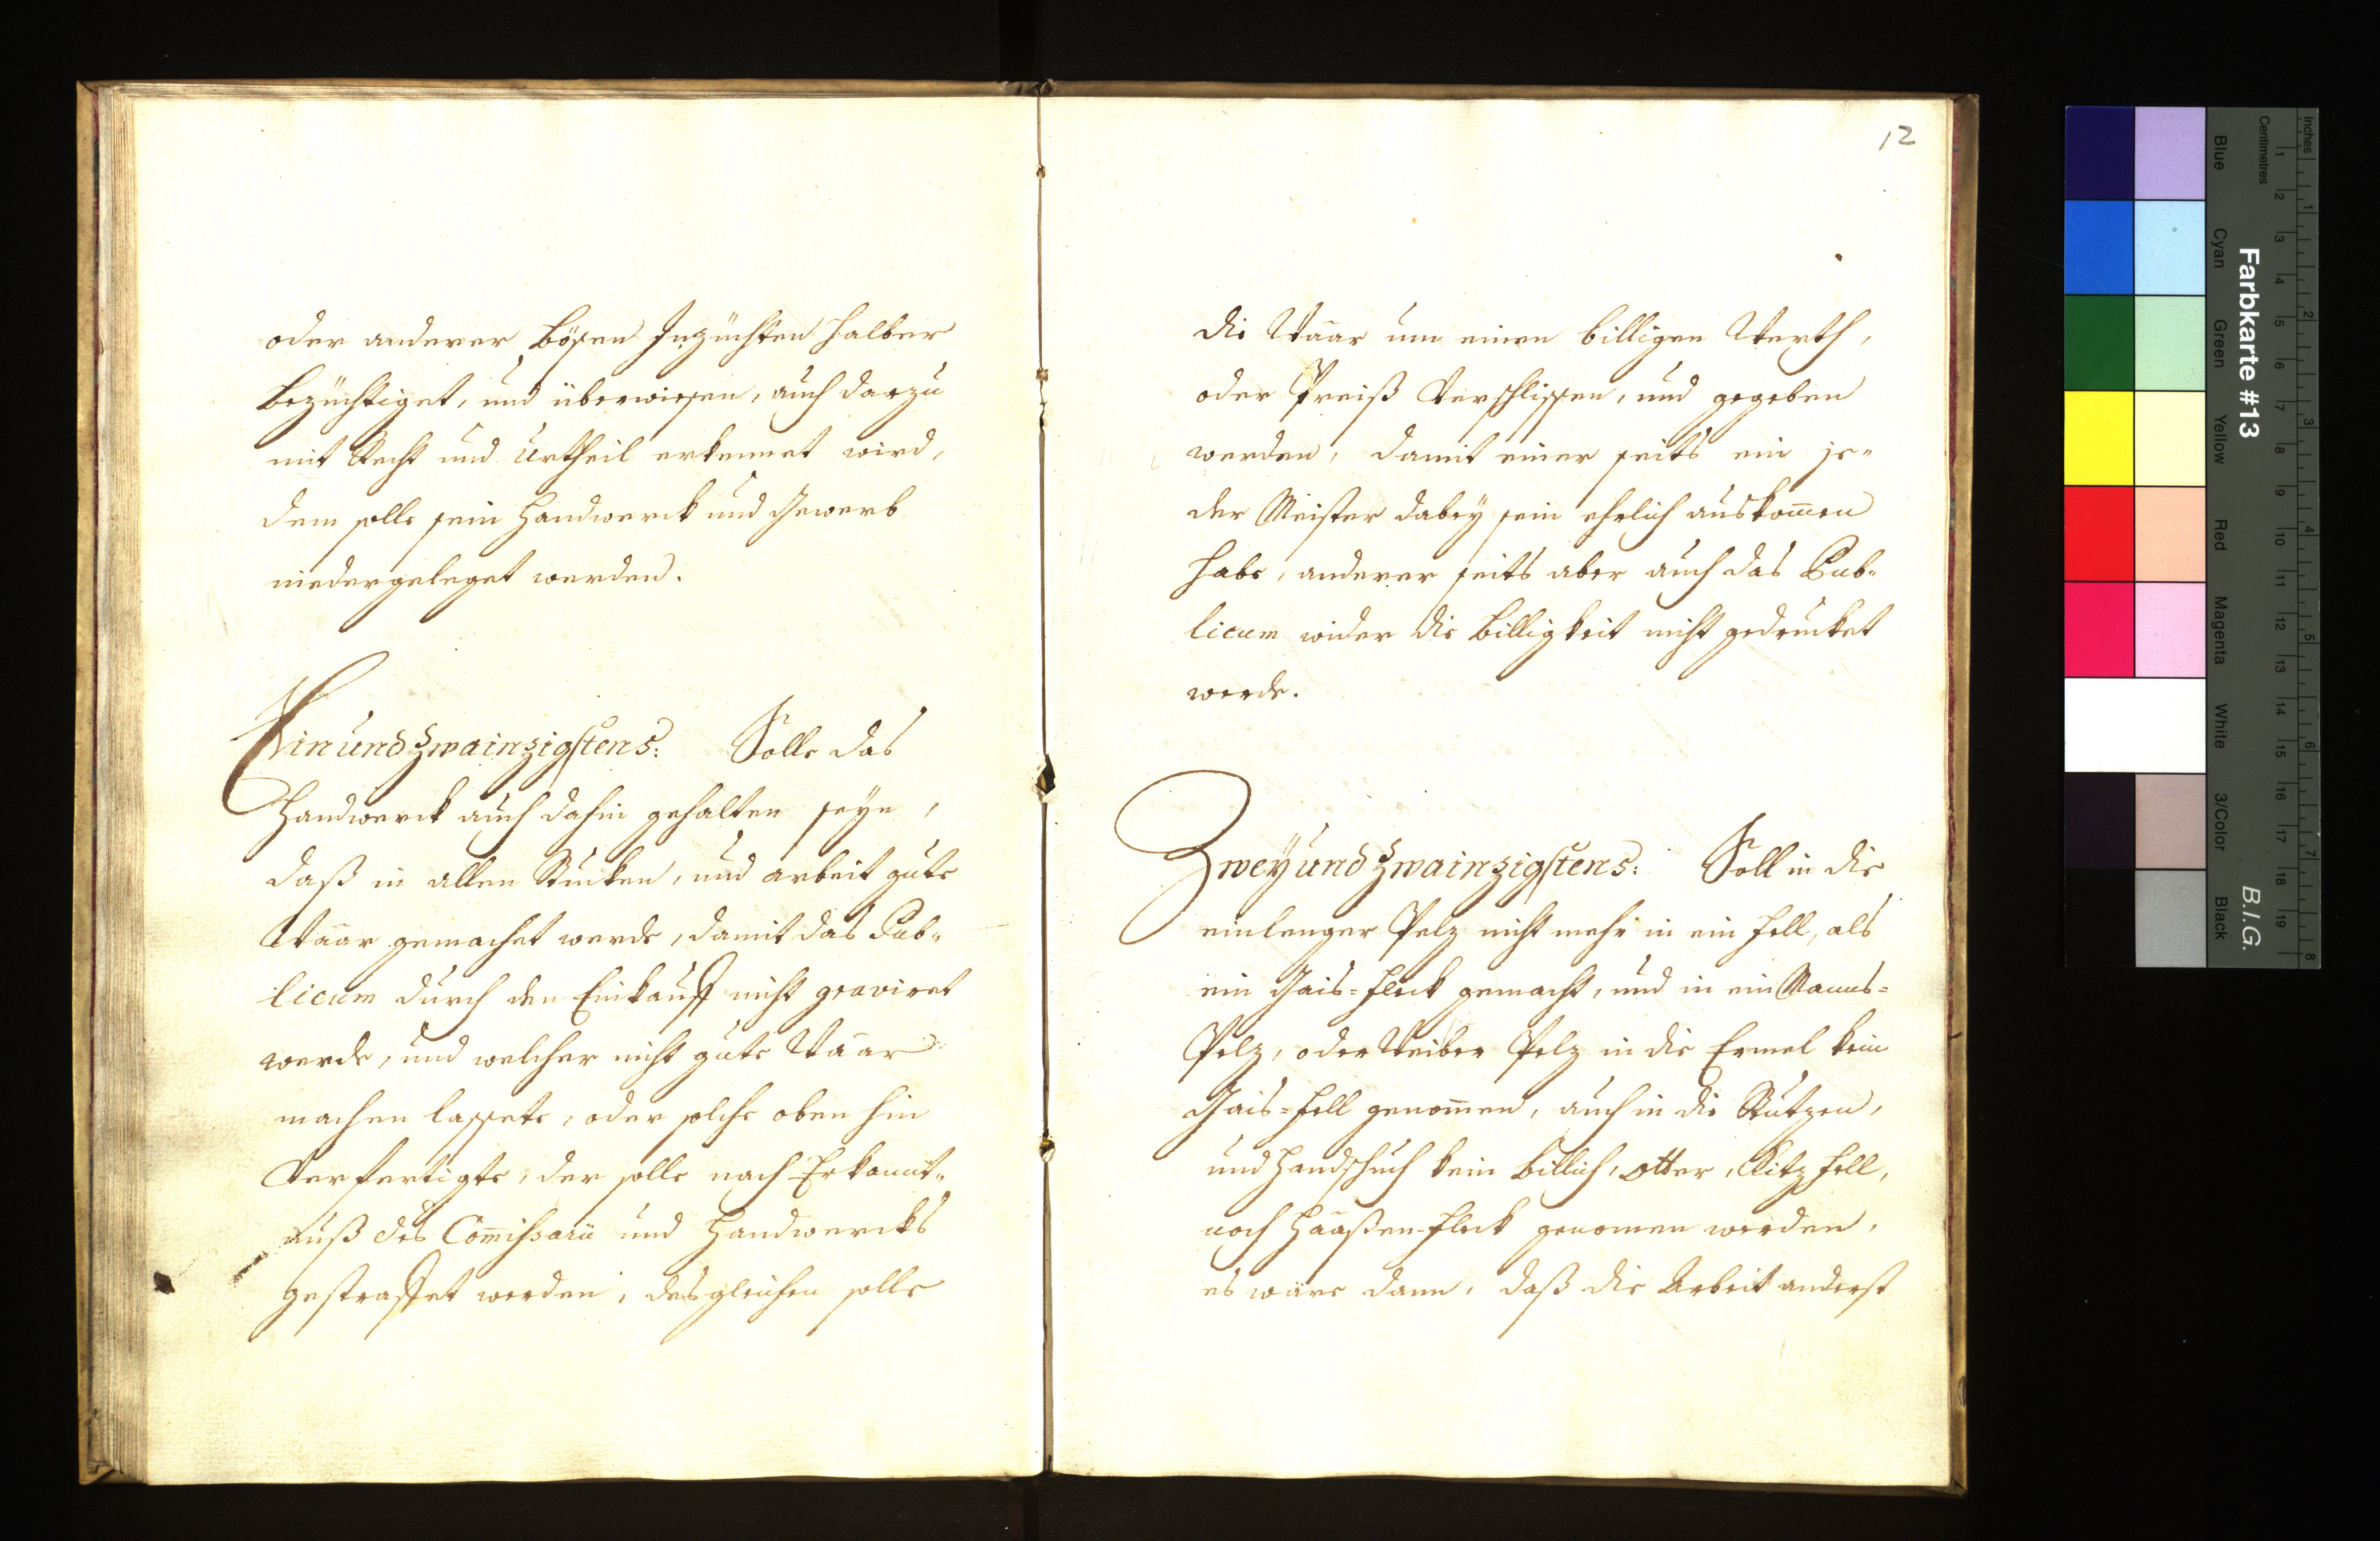 oder anderer bösen Inzüchten halber
bezüchtiget, und überwiesen, auch darzu
mit Recht und Urtheil erkennet wird,
dem solle sein Handwerck und Gewerb
niedergeleget werden.
Einundzwainzigstens: Solle das
Handwerck auch dahin gehalten seyn,
daß in allen Stucken, und arbeit gute
Waar gemachet werde, damit das Pub-
licum durch den Einkauff nicht graviret
werde, und welcher nicht gute Waar
machen lassete, oder solche oben hin
Verfertigte, der solle nach Erkannt-
nuß des Com̄issarii und Handwercks
gestraffet werden, desgleichen solle
12
die Waar um einen billigen Werth,
oder Preiß Verschlissen, und gegeben
werden, damit einer seits ein je-
der Meister dabey sein ehrlich auskom̄en
habe, anderer seits aber auch das Pub-
licum wider die Billigkeit nicht gedrucket
werde.
Zweyundzwainzigstens: Soll in die
einlenger Pelz nicht mehr in ein Fell, als
ein Gais=Fleck gemacht, und in ein Manns=
Pelz, oder Weiber Pelz in die Ermel kein
Gais=Fell genom̄en, auch in die Stutzen,
und Handschuch kein Billich, Otter, Kitz Fell,
noch Haaßen-Fleck genomen werden,
es wäre dann, daß die Arbeit anderst
Inches
Centimetres
Blue
Cyan
Green
Yellow
Red
Magenta
White
3/Color
Black
Farbkarte #13
B.I.G.